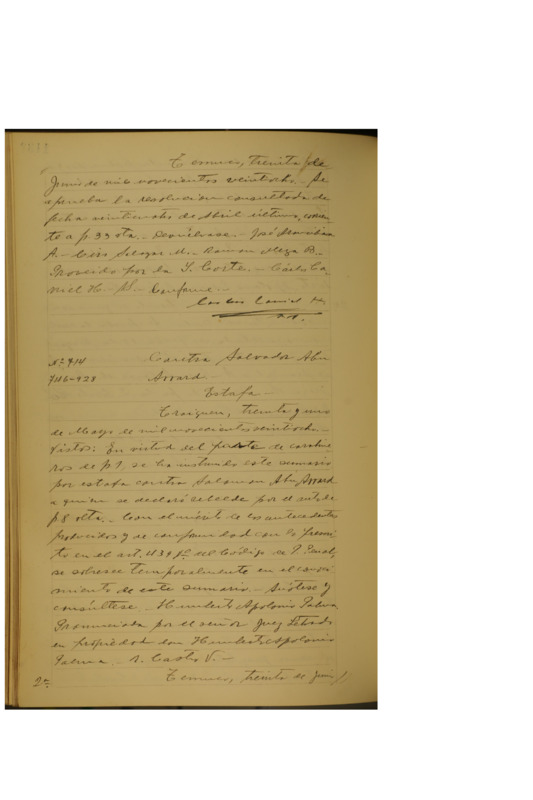 Temuco, treinta de
Junio de mil novecientos veintiocho.- Se
aprueba la resolucion consultada de
fecha veintiocho de Abril último, corrien-
te a f. 33 vta.- Devuélvase.- José
A.- Ciro Salazar M.- Roman Meza B.-
Proveido por la I. Corte.- Carlos Ca-
niel H.- S.- Conforme.-
Carlos
Nº 414
Contra Salvador Abu
7116-928
Awad.
Estafa.-
Traiguen, treinta y uno
de Mayo de mil novecientos veintiocho.-
Vistos: En virtud del parte de carabine-
ros de f 1 se ha instruido este sumario
por estafa contra Salomon Abu Awad
a quien se declaró rebelde por el auto de
f 8 vlta.- Con el mérito de los antecedentes
producidos y de conformidad con lo previs-
to en el art. 439 del Código de P. Penal,
se sobresee temporalmente en el conoci-
miento de este sumario.- Anótese y
consúltese.- Humberto Apolonio Palma
Pronunciada por el señor Juez Letrado
en propiedad don Humberto Apolonio
Palma.- R. Castro V.-
2ª
Temuco, treinta de Juni